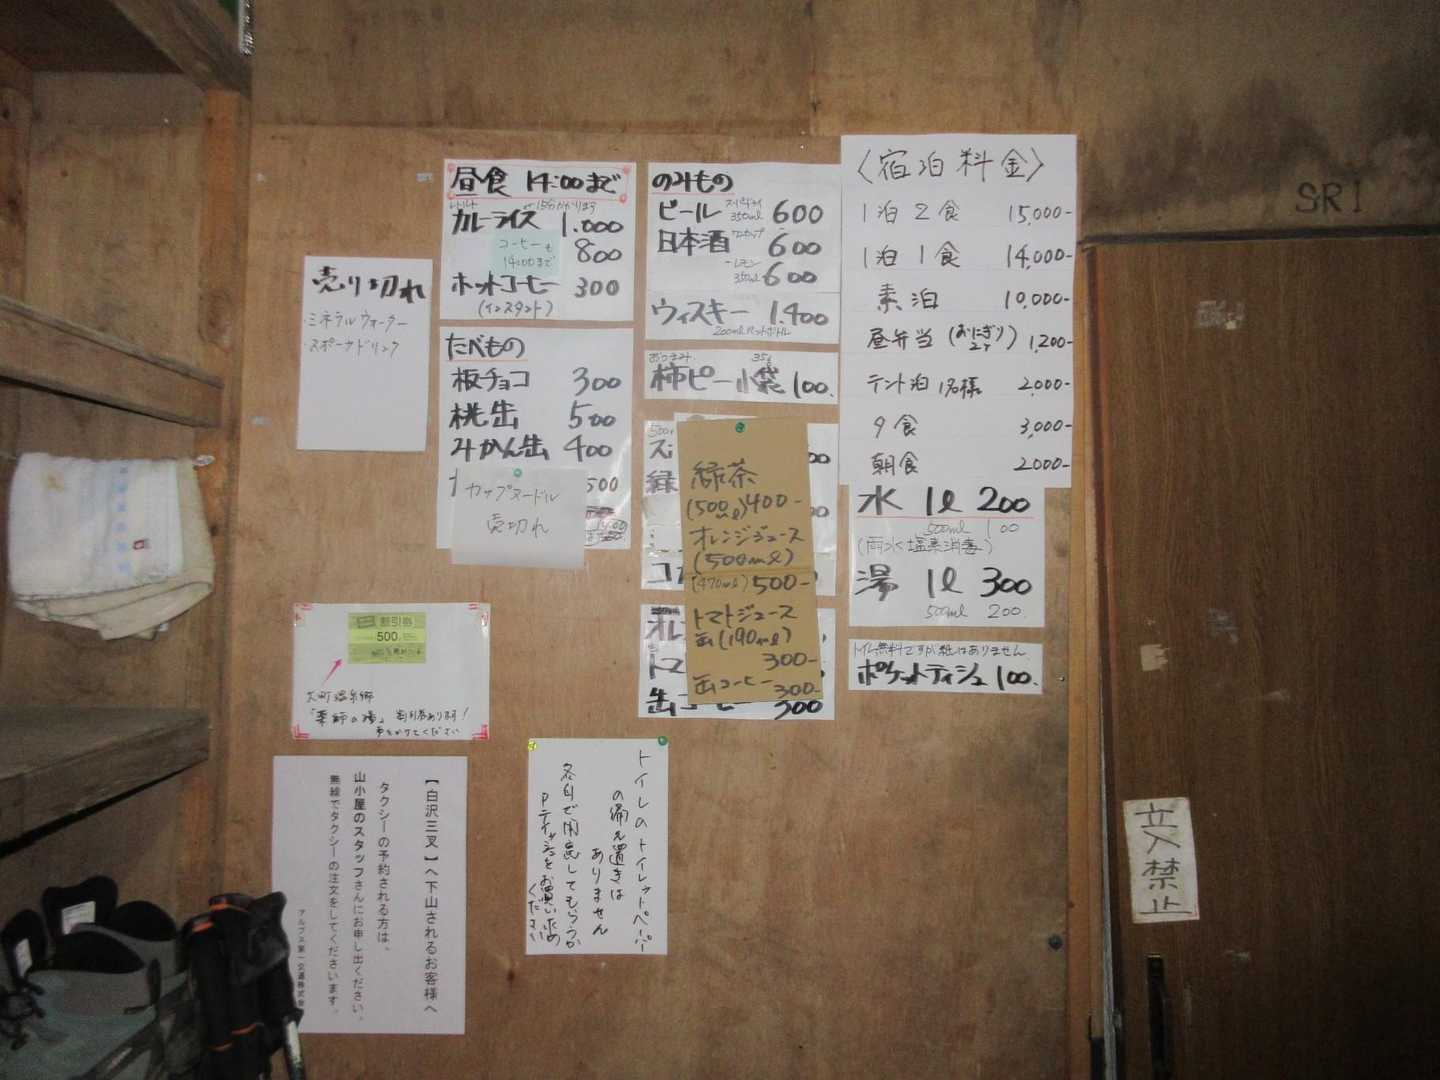 売り切れ
・ミネラルウォーター
・スポーツドリンク
昼食 14:00まで
レトルト
15分かかります
カレーライス 1,000
コーヒーも
14:00まで
800
ホットコーヒー 300
(インスタント)
たべもの
板チョコ 300
桃缶 500
みかん缶 400
500
カップヌードル
売切れ
のみもの
ビール 350ml 600
日本酒 ワンカップ 600
レモン
350ml 600
ウィスキー 1,400
200mlペットボトル
おつまみ 35g
柿ピー小袋 100.
緑茶
(500ml)400-
オレンジジュース
(500ml)
(470ml)500-
トマトジュース
缶(190ml)
300-
缶コーヒー 300-
缶コーヒー 300
〈宿泊料金〉
1泊2食 15,000-
1泊1食 14,000-
素泊 10,000-
昼弁当(おにぎり2ケ) 1,200-
テント泊1名様 2,000-
夕食 3,000-
朝食 2,000-
水 1ℓ 200
500ml 100
(雨水塩素消毒)
湯 1ℓ 300
500ml 200.
トイレ無料ですが紙はありません
ポケットティシュ 100.
割引券
500
大町温泉郷
「薬師の湯」割引券あります!
声をかけてください
【白沢三叉】へ下山されるお客様へ
タクシーの予約される方は、
山小屋のスタッフさんにお申し出ください。
無線でタクシーの注文をしてくださいます。
アルプス第一交通株式会
トイレのトイレットペーパー
の備え置きは
ありません
各自で用意してもらうか
Pティッシュをお買いため
ください
SRI
立入禁止